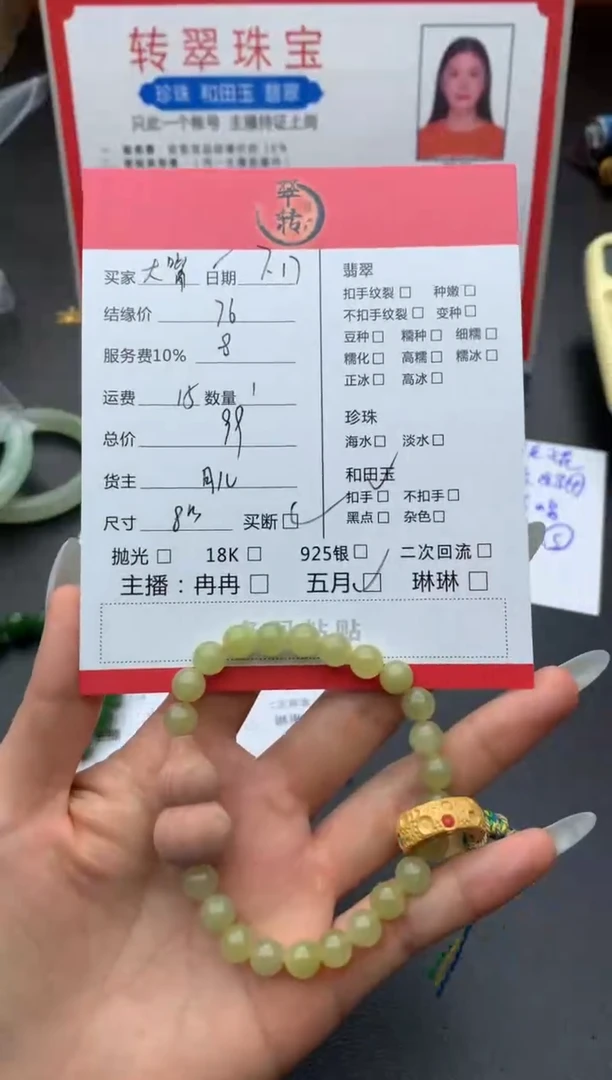 转翠珠宝
珍珠 和田玉 翡翠
只此一个帐号 主播持证上岗
翠转
买家 大嘴 日期 7.17
结缘价 76
服务费10% 8
运费 15 数量 1
总价 99
货主
尺寸 8m 买断☐
翡翠
扣手纹裂☐ 种嫩☐
不扣手纹裂☐ 变种☐
豆种☐ 糯种☐ 细糯☐
糯化☐ 高糯☐ 糯冰☐
正冰☐ 高冰☐
珍珠
海水☐ 淡水☐
和田玉
扣手☐ 不扣手☐
黑点☐ 杂色☐
抛光☐ 18K☐ 925银☐ 二次回流☐
主播：冉冉☐ 五月☑ 琳琳☐
粘贴